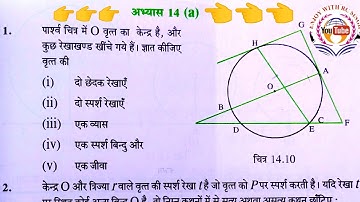 अभ्यास 14 (a)
1. पार्श्व चित्र में O वृत्त का केन्द्र है, और
कुछ रेखाखण्ड खींचे गये हैं। ज्ञात कीजिए
वृत्त की
(i) दो छेदक रेखाएँ
(ii) दो स्पर्श रेखाएँ
(iii) एक व्यास
(iv) एक स्पर्श बिन्दु और
(v) एक जीवा
G
H
A
O
B
D
E
C
F
चित्र 14.10
YouTube
2. केन्द्र O और त्रिज्या r वाले वृत्त की स्पर्श रेखा l है जो वृत्त को P पर स्पर्श करती है। यदि रेखा l